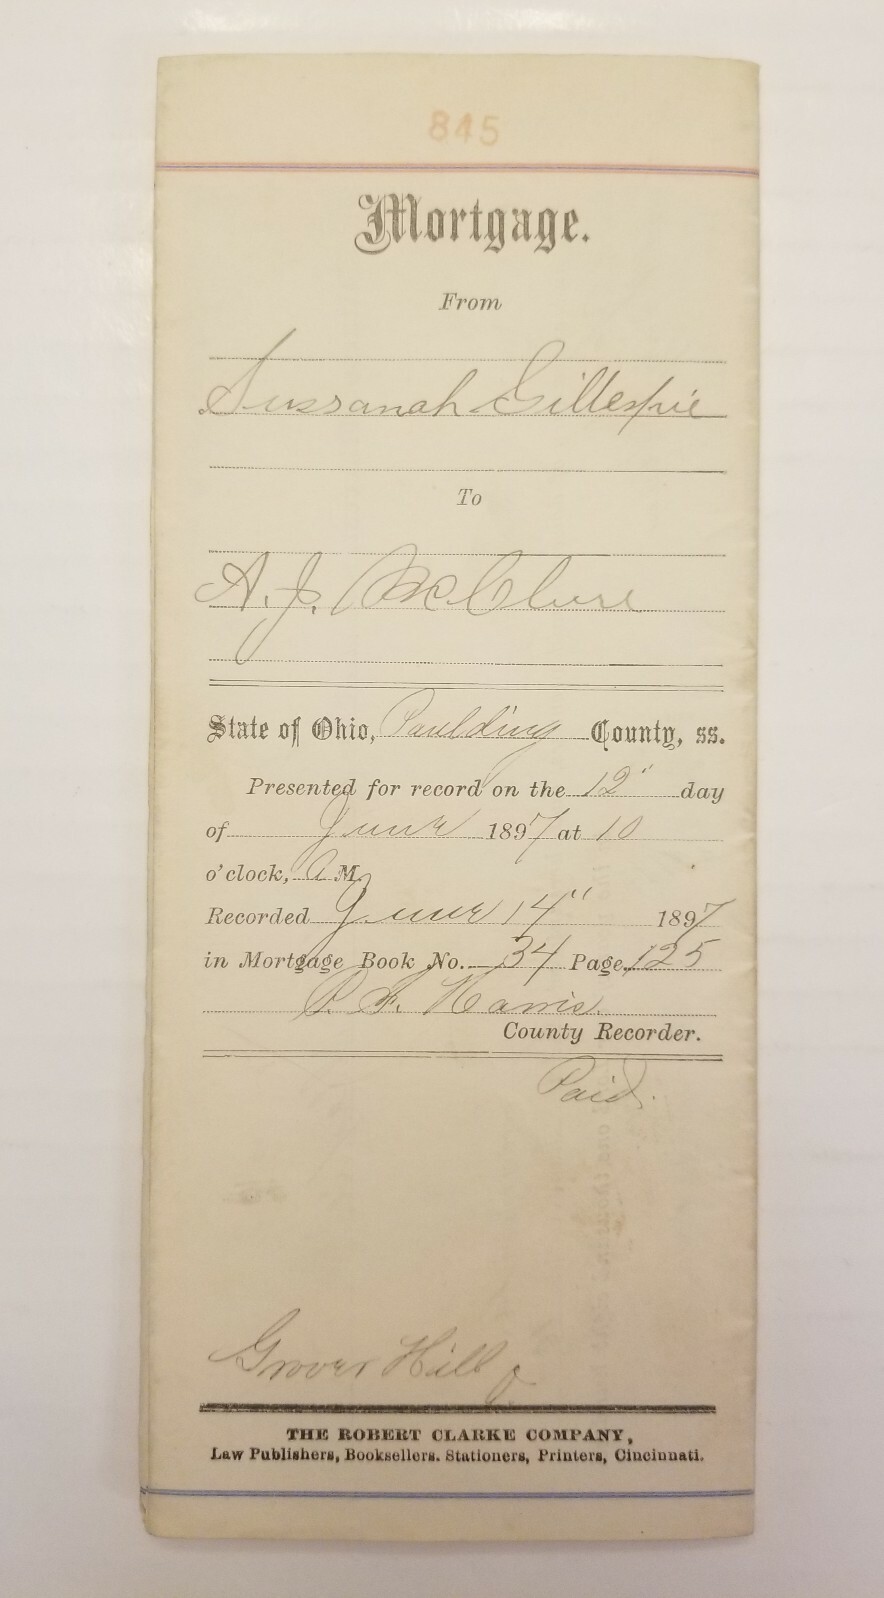 845
Mortgage.
From
Sussanah Gillespie
To
A. J. McClure
State of Ohio, Paulding County, ss.
Presented for record on the 12" day
of June 1897 at 10
o'clock, A M.
Recorded June 14" 1897
in Mortgage Book No. 34 Page 125
P. F. Harris.
County Recorder.
Paid.
Grover Hill
THE ROBERT CLARKE COMPANY,
Law Publishers, Booksellers. Stationers, Printers, Cincinnati.